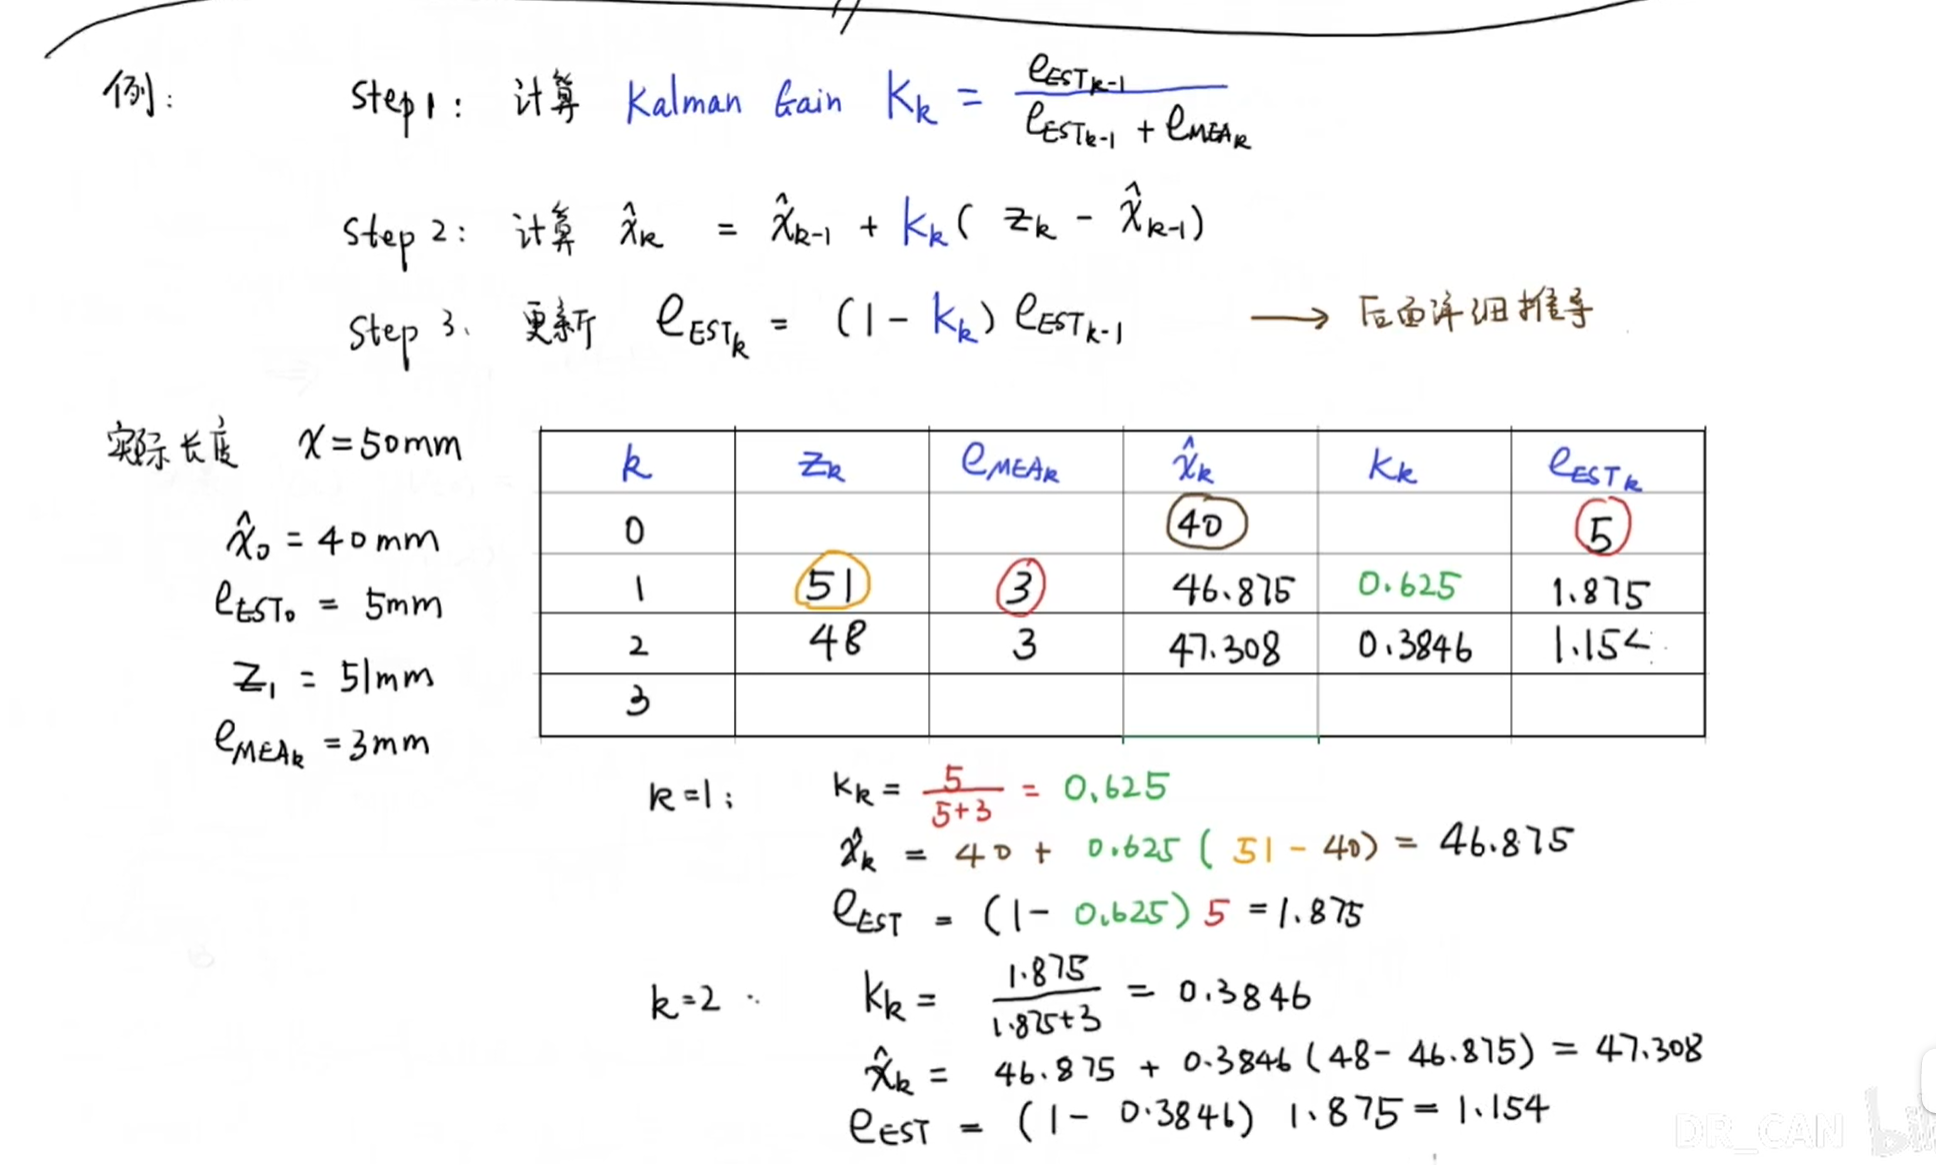 例: Step1: 计算 Kalman Gain K_k = e_EST_k-1 / (e_EST_k-1 + e_MEA_k)
Step 2: 计算 x̂_k = x̂_k-1 + K_k ( z_k - x̂_k-1)
Step 3. 更新 e_EST_k = (1 - K_k) e_EST_k-1 → 后面详细推导
实际长度 x = 50mm
x̂_0 = 40mm
e_EST_0 = 5mm
z_1 = 51mm
e_MEA_k = 3mm
k z_k e_MEA_k x̂_k K_k e_EST_k
0 40 5
1 51 3 46.875 0.625 1.875
2 48 3 47.308 0.3846 1.154
3
k=1: K_k = 5 / (5+3) = 0.625
x̂_k = 40 + 0.625 ( 51 - 40) = 46.875
e_EST = (1 - 0.625) 5 = 1.875
k=2: K_k = 1.875 / (1.875+3) = 0.3846
x̂_k = 46.875 + 0.3846 (48 - 46.875) = 47.308
e_EST = (1 - 0.3846) 1.875 = 1.154
DR_CAN